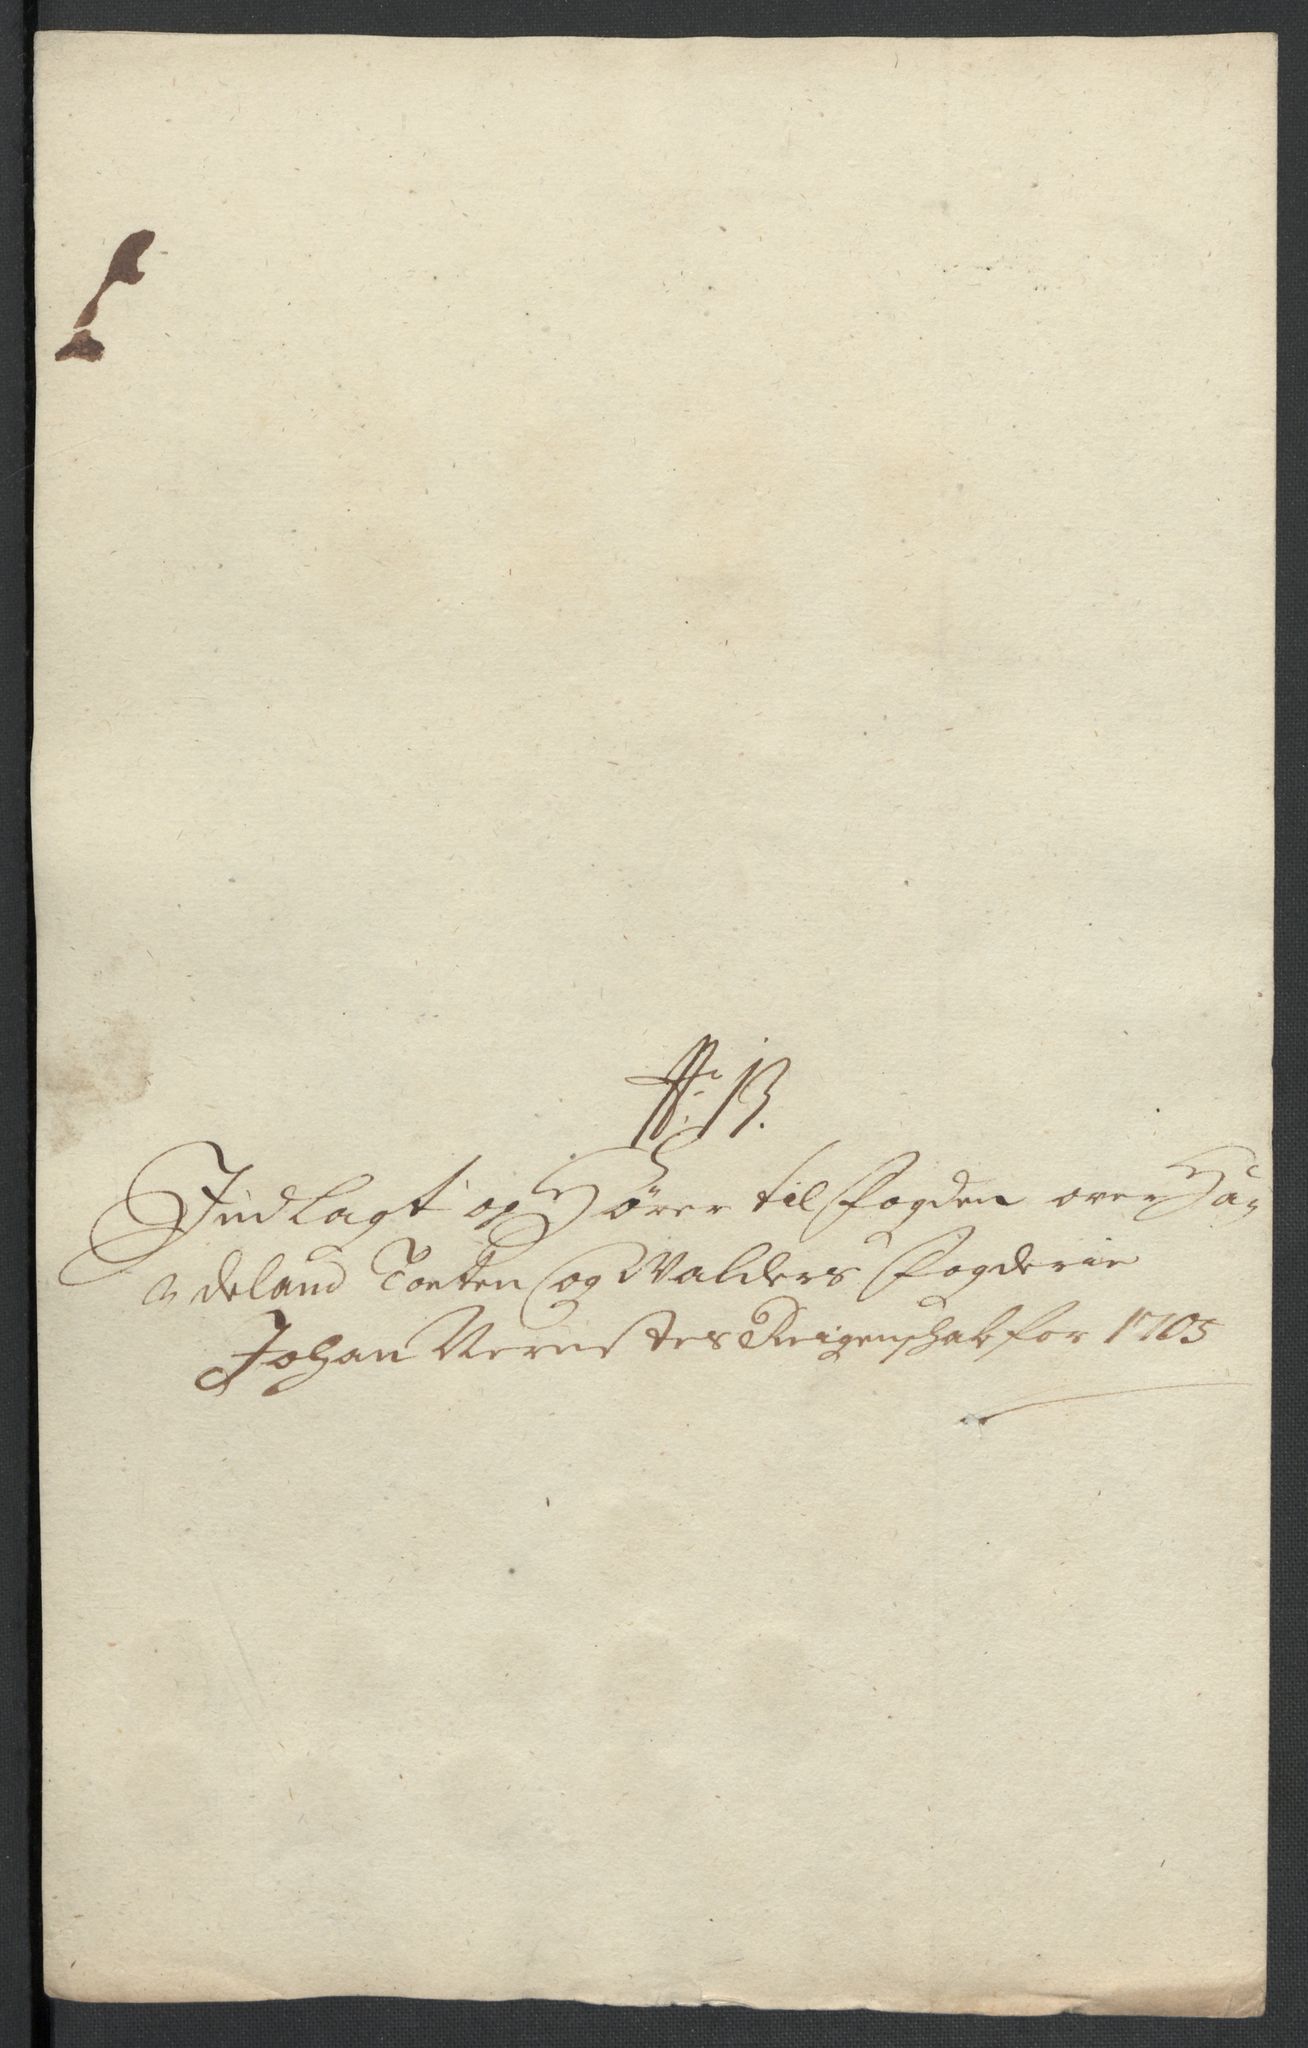 No: 13.
Indlagt og Hörer til Fogden over Ha-
deland Toten og Valders Fogderie
Johan Vernstes Reigenschab for 1705